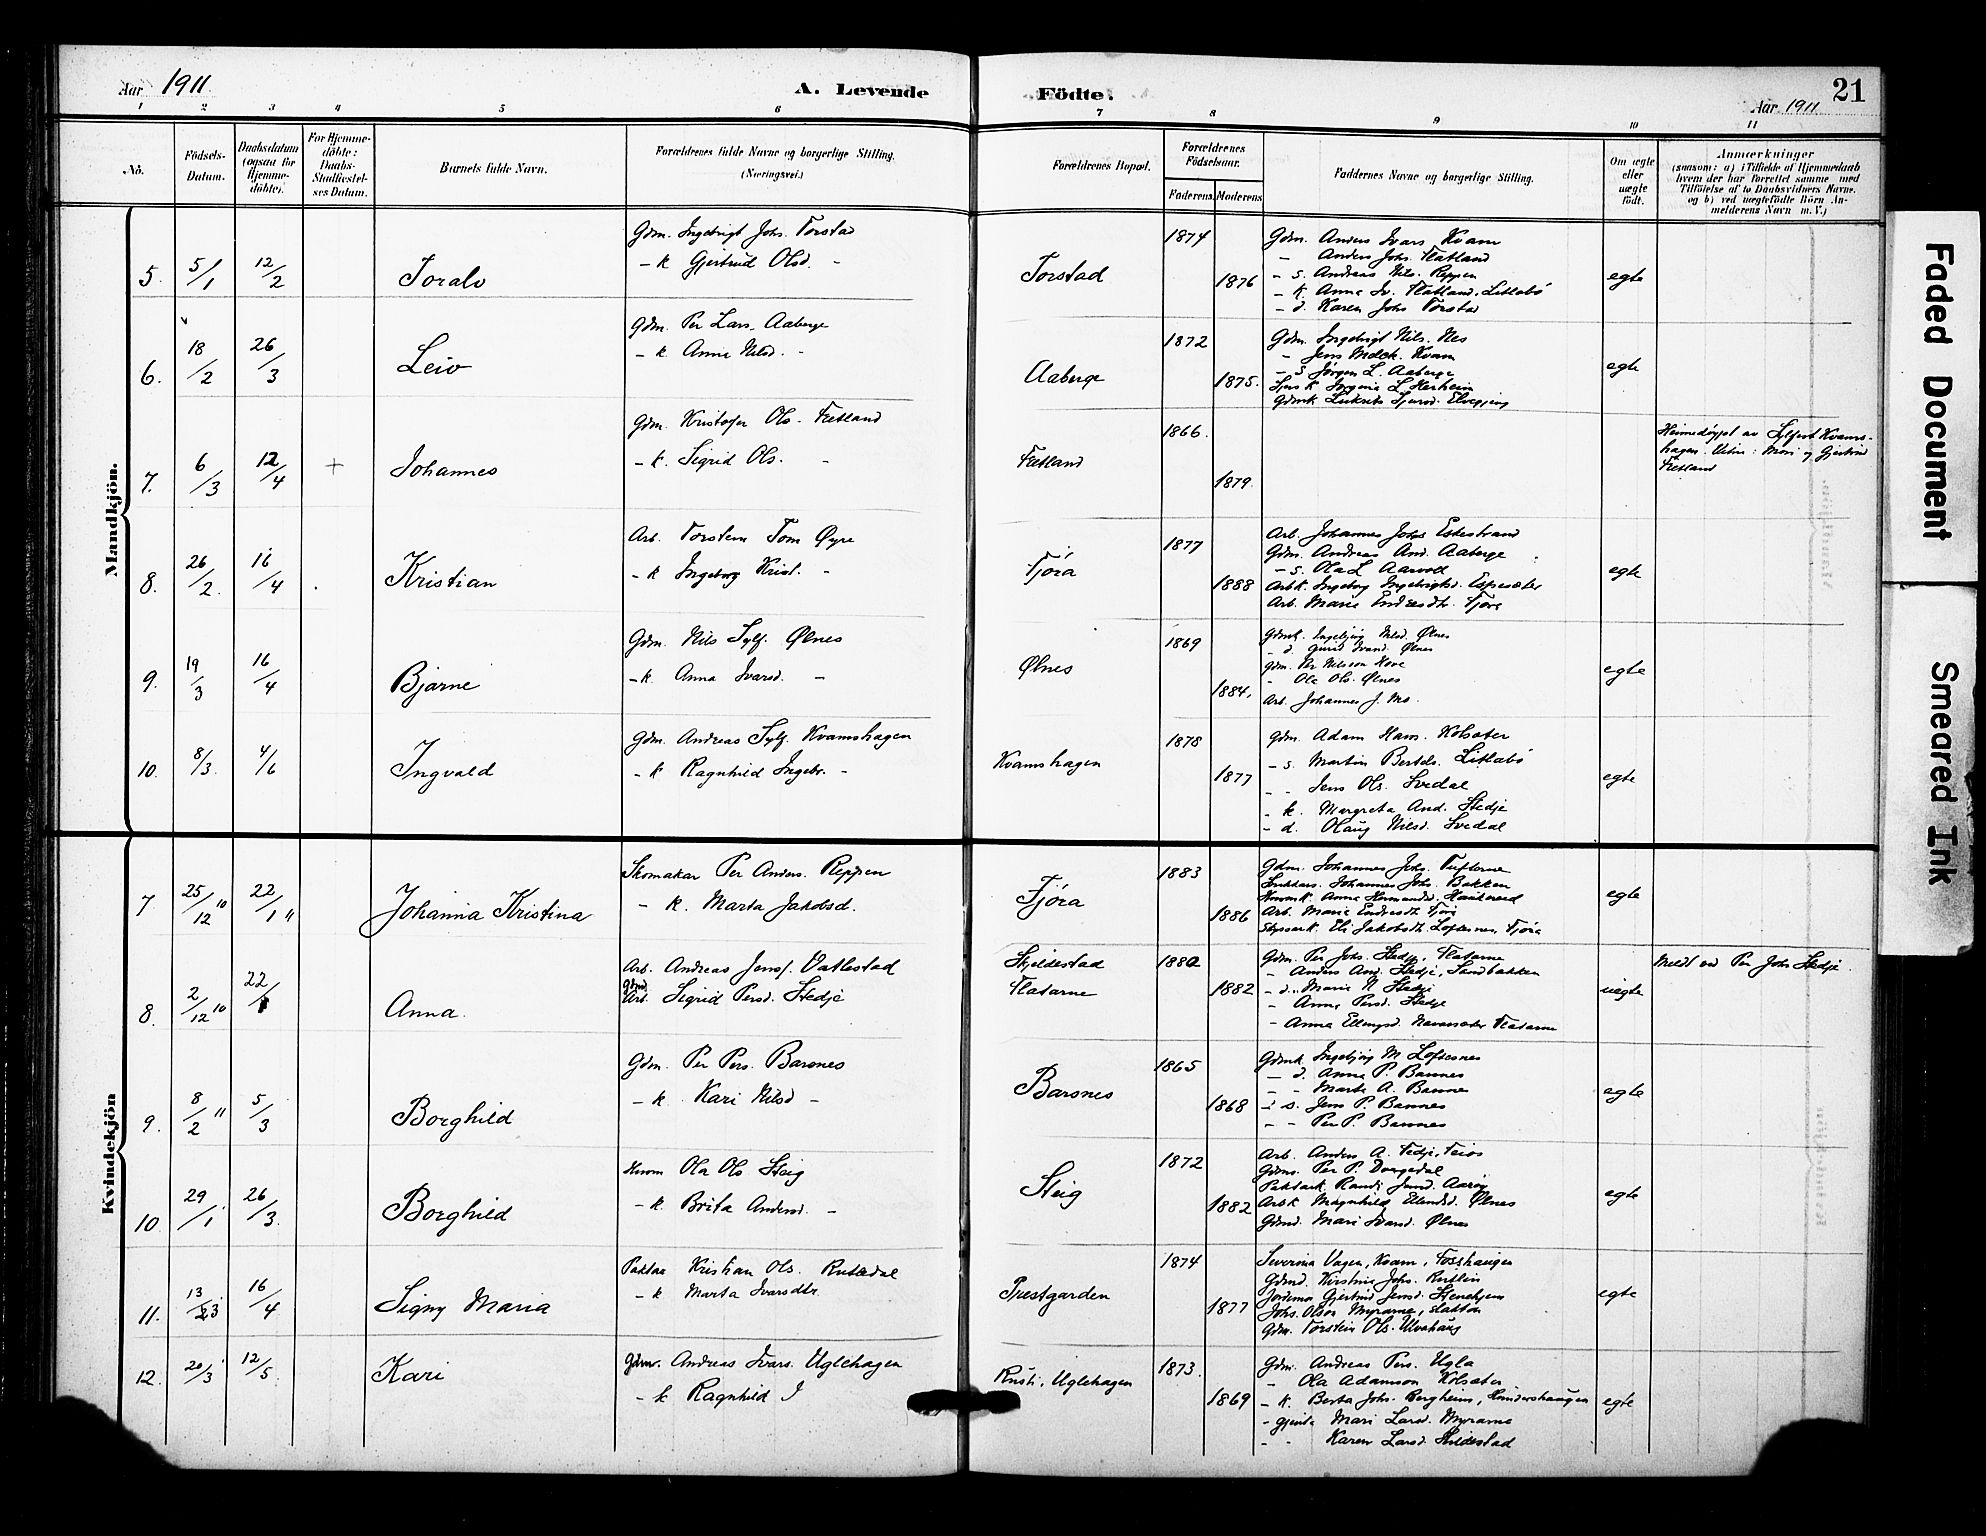 Aar 1911.
A. Levende Födte.
21
Aar 1911
1 2 3 4 5 6 7 8 9 10 11
No.
Födsels-
Datum.
Daabsdatum
(ogsaa for
Hjemme-
døbte).
For Hjemme-
döbte:
Daabs-
Stadfæstel-
ses Datum.
Barnets fulde Navn.
Forældrenes fulde Navne og borgerlige Stilling.
(Næringsvei.)
Forældrenes Bopæl.
Forældrenes
Födselsaar.
Faderens
Moderens
Faddernes Navne og borgerlige Stilling.
Om ægte
eller
uægte
födt.
Anmærkninger
(saasom: a) i Tilfælde af Hjemmedaab
hvem der har forrettet samme med
Tilföielse af to Daabsvidners Navne.
og b) ved uægtefödte Börn An-
melderens Navn m. V.)
Mandkjön.
5. 5/1 12/2 Toralv
Gdm. Ingebrigt Johs. Torstad
- k Gjertrud Olsd. -
Torstad 1874 1876
Gdm. Anders Ivars Kvam
- Anders Johs. Flatland
- s. Andreas Nils. Reppen
- k. Anna Iv. Flatland, Litlabø
- d. Karen Johs Torstad
egte
6. 18/2 26/3 Leiv
Gdm. Per Lars. Aaberge
- k Anna Nilsd. -
Aaberge 1872 1875.
Gdm. Ingebrigt Nils. Nes
- Jens Melck. Kvam
- s Jørgen L. Aaberge
egte
7. 6/3 12/4 + Johannes
Gdm. Kristofer Ols. Fætland
- k. Sigrid Ols. -
Fætland 1866. 1879.
Heimedøypt av Sylfest Kvams-
hagen. Vitne: Mari og Gjertrud
Fætland
8. 26/2. 16/4 Kristian
Arb. Torstein Tom Øyre
- k Ingeborg Krist. -
Fjøra 1877 1888
Arb. Johannes Johs Eskestrand
Gdm. Andreas And. Aaberge
- s. Ola L Aarvoll
Arbk. Ingeborg Ingebrigtsd. Espesæter
Arb. Marie Endresdtr. Fjøra
egte
9. 19/3 16/4 Bjarne
Gdm. Nils Sylf. Ølnes
- k. Anna Ivarsd. -
Ølnes 1869 1884.
Gdmk. Ingebjørg Nilsd. Ølnes
- d. Gurid Ivarsd. Ølnes
Gdm. Per Nilsson Hove
- Ola Ols. Ølnes
Arb. Johannes J. Mo.
egte
10. 8/3. 4/6 Ingvald
Gdm. Andreas Sylf. Kvamshagen
- k Ragnhild Ingebr. -
Kvamshagen 1878 1877
Gdm. Adam Hans. Kolsæter
- s. Martin Bertels. Litlabø
- - Jens Ols. Svedal
- k. Margreta And. Stedje
- d. Olaug Nilsd. Svedal
egte
Kvindekjön
7 25/12 10 22/1 11 Johanna Kristina
Skomakar Per Anders. Reppen
- k. Marta Jakobsd.
Fjøra 1883 1886
Gdm. Johannes Johs. Tufterne
Johannes Johs. Bakken
Arb. Marie Endresdt. Fjøra
Eli Jakobsdt. Loftesnes, Fjøra
egte
8. 2/12 10 22/1 Anna.
Arb. Andreas Jensf. Vatlestad
Gdmd. Sigrid Persd. Stedje
Skjeldestad
Flatarne
1882 1882
Gdm. Per Johs. Stedje, Flatarne
- Anders And. Stedje, Sandbakken
- d. Marie N Stedje
- Anna Persd. Stedje
- Anna Ellingsd. Navarsæter Flatarne
uegte
Meldt av Per Johs Stedje.
9. 8/2 11 5/3 Borghild
Gdm. Per Pers. Barsnes
- k. Kari Nilsd -
Barsnes 1865 1868
Gdmk Ingebjørg M. Loftesnes
- d. Anna P. Barsnes
- - Marta A. Barsnes
- s. Jens P. Barsnes
- - Per P. Barsnes
egte
10 29/1 26/3. Borghild
Husm Ola Ols Steig
- k. Brita Andersd. -
Steig 1872 1882
Arb. Anders A. Fedje, Feios
Gdms. Per P. Dregedal
Paktark Randi Jensd. Aarøy
Arbk Magnhild Erlendsd. Ølnes
Gdmd. Mari Ivarsd. Ølnes
egte
11. 13/3 16/4 Signy Maria
Paktar Kristian Ols. Rutledal
- k Marta Ivarsdtr.
Prestgarden 1874 1877
Severina Vagen, Kvam, Fosshaugen
Gdmd. Kirstina Johs. Kvitlin
Jordmor Gjertrud Jensd. Stenehjem
Johs. Olson Myrarne, slakter
Gdm. Torstein Ols. Ulvahaug
egte
12. 20/3 12/5 Kari
Gdm. Andreas Ivars. Uglehagen
- k Ragnhild I
Rusti, Uglehagen 1873. 1869
Gdm. Andreas Pers. Ugla
- Ola Adamson Kolsæter
- k. Berta Johs. Bergheim, Hundershaugen
- gjenta Mari Larsd. Myrarne
- - Karen Larsd. Skildestad
egte
Faded Document
Smeared Ink